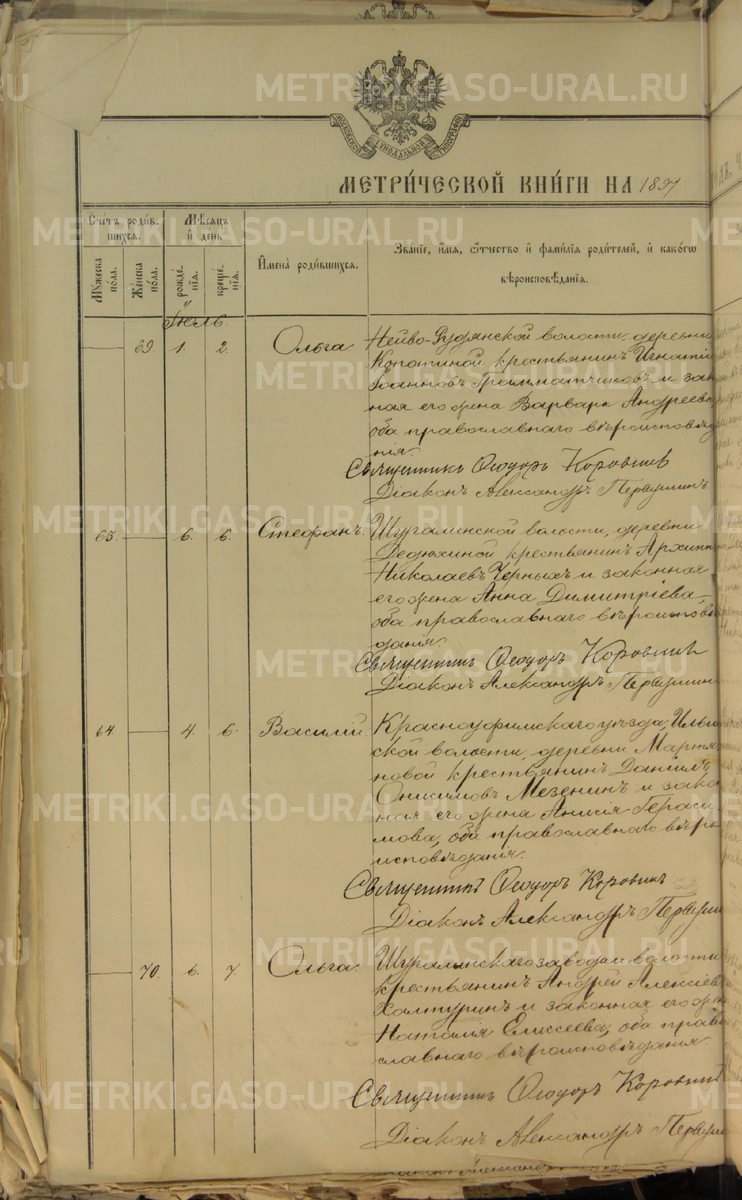 МОСКОВСКОЙ СѴНОДАЛЬНОЙ ТИПОГРАФІИ
МЕТРИ́ЧЕСКОЙ КНИ́ГИ НА 1897
Счетъ роди́в-
шихся.
Му́жеска по́ла.
Же́нска по́ла.
Мѣсяцъ и день
рожде-
нія.
креще-
нія.
Имена̀ роди́вшихся.
Зва́ніе, и́мя, о́тчество и фами́лія роди́телей, и како́гѡ
вѣроисповѣ́данія.
Іюль.
69 1. 2. Ольга Нейво-Рудянской волости, деревни
Копотиной крестьянинъ Игнатій
Іоанновъ Грамматчиковъ и закон
ная его жена Варвара Андреева
оба православнаго вѣроисповѣда
нія.
Священникъ Ѳеодоръ Коровинъ
Діаконъ Александръ Первушинъ
63. 6. 6. Стефанъ. Шуралинской волости, деревни
Федюхиной крестьянинъ Архипъ
Николаевъ Черныхъ и законная
его жена Анна Димитріева,
оба православнаго вѣроисповѣ
данія.
Священникъ Ѳеодоръ Коровинъ
Діаконъ Александръ Первушинъ
64 4. 6. Василій. Красноуфимскаго уѣзда, Ильин
ской волости, деревни Мартья
новой крестьянинъ Даніилъ
Онисимовъ Мезенинъ и закон
ная его жена Анисія Гераси
мова, оба православнаго вѣро
исповѣданія.
Священникъ Ѳеодоръ Коровинъ
Діаконъ Александръ Первушин
70. 6. 7. Ольга. Шуралинскаго завода и волости
крестьянинъ Андрей Алексіев
Халтуринъ и законная его жен
Наталія Елиссеева, оба право
славнаго вѣроисповѣданія.
Священникъ Ѳеодоръ Коровинъ
Діаконъ Александръ Первушин
METRIKI.GASO-URAL.RU